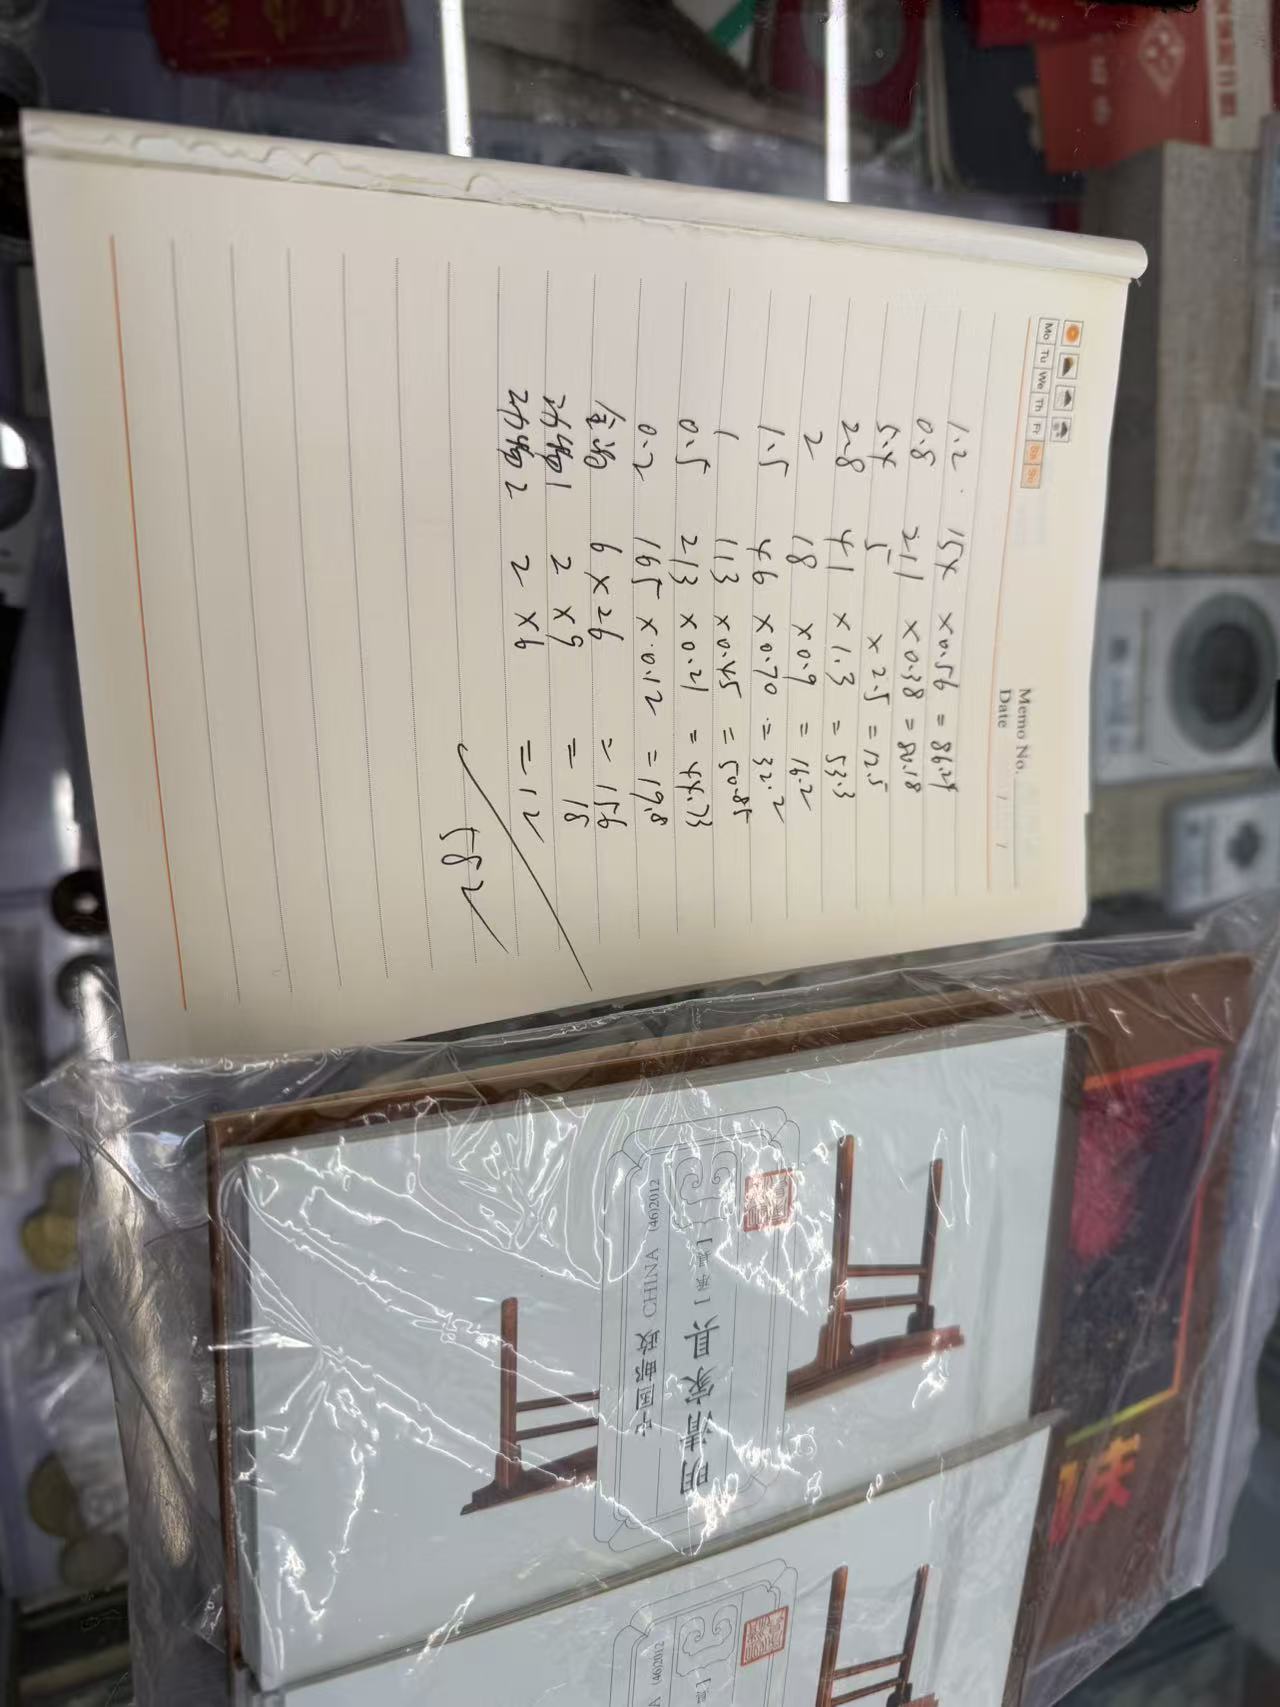 Memo No.
Date
Mo Tu We Th Fr Sa Su
1.2 154 × 0.56 = 86.24
0.8 211 × 0.38 = 80.18
5.4 5 × 2.5 = 12.5
2.8 41 × 1.3 = 53.3
2 18 × 0.9 = 16.2
1.5 46 × 0.70 = 32.2
1 113 × 0.45 = 50.85
0.5 213 × 0.21 = 44.73
0.2 165 × 0.12 = 19.8
6 × 26 = 156
1 2 × 9 = 18
2 2 × 6 = 12
582
中国邮政 CHINA (46)2012
明清家具 [承具]
(46)2012
庆